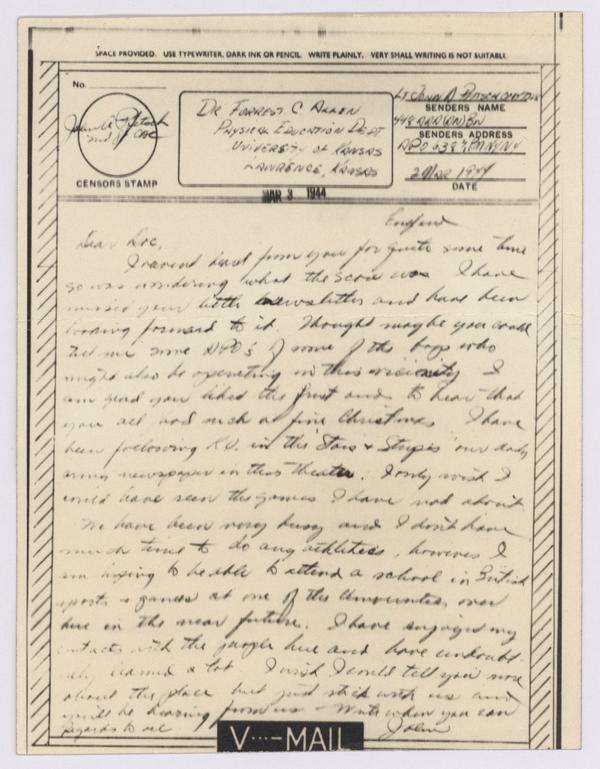 SPACE PROVIDED. USE TYPEWRITER, DARK INK OR PENCIL. WRITE PLAINLY. VERY SMALL WRITING IS NOT SUITABLE.
No.
CENSORS STAMP
DR FORREST C. ALLEN
PHYSICAL EDUCATION DEPT
UNIVERSITY OF KANSAS
LAWRENCE, KANSAS
Lt JOHN A
SENDERS NAME
448 AAA (AW) BN
SENDERS ADDRESS
APO 638 % PM NY NY
2 MAR 1944
DATE
MAR 3 1944
England
Dear Doc,
I havent heard from you for quite some time
so was wondering what the score was I have
missed your little newsletter and have been
looking forward to it. Thought maybe you could
tell me some APO's of some of the boys who
might also be operating in this vicinity I
am glad you liked the and to hear that
you all had such a fine Christmas I have
been following K.U. in the Stars & Stripes our daily
army newspaper in this theater. I only wish I
could have seen the games I have read about.
We have been very busy and I don't have
much time to do any athletics, however I
am hoping to be able to attend a school in British
sports & games at one of the Universities over
here in the near future. I have enjoyed my
contacts with the people here and have undoubt-
edly learned a lot I wish I could tell you more
about the place but just stick with us and
you'll be hearing from us - Write when you can
Regards to all
John
V···-MAIL